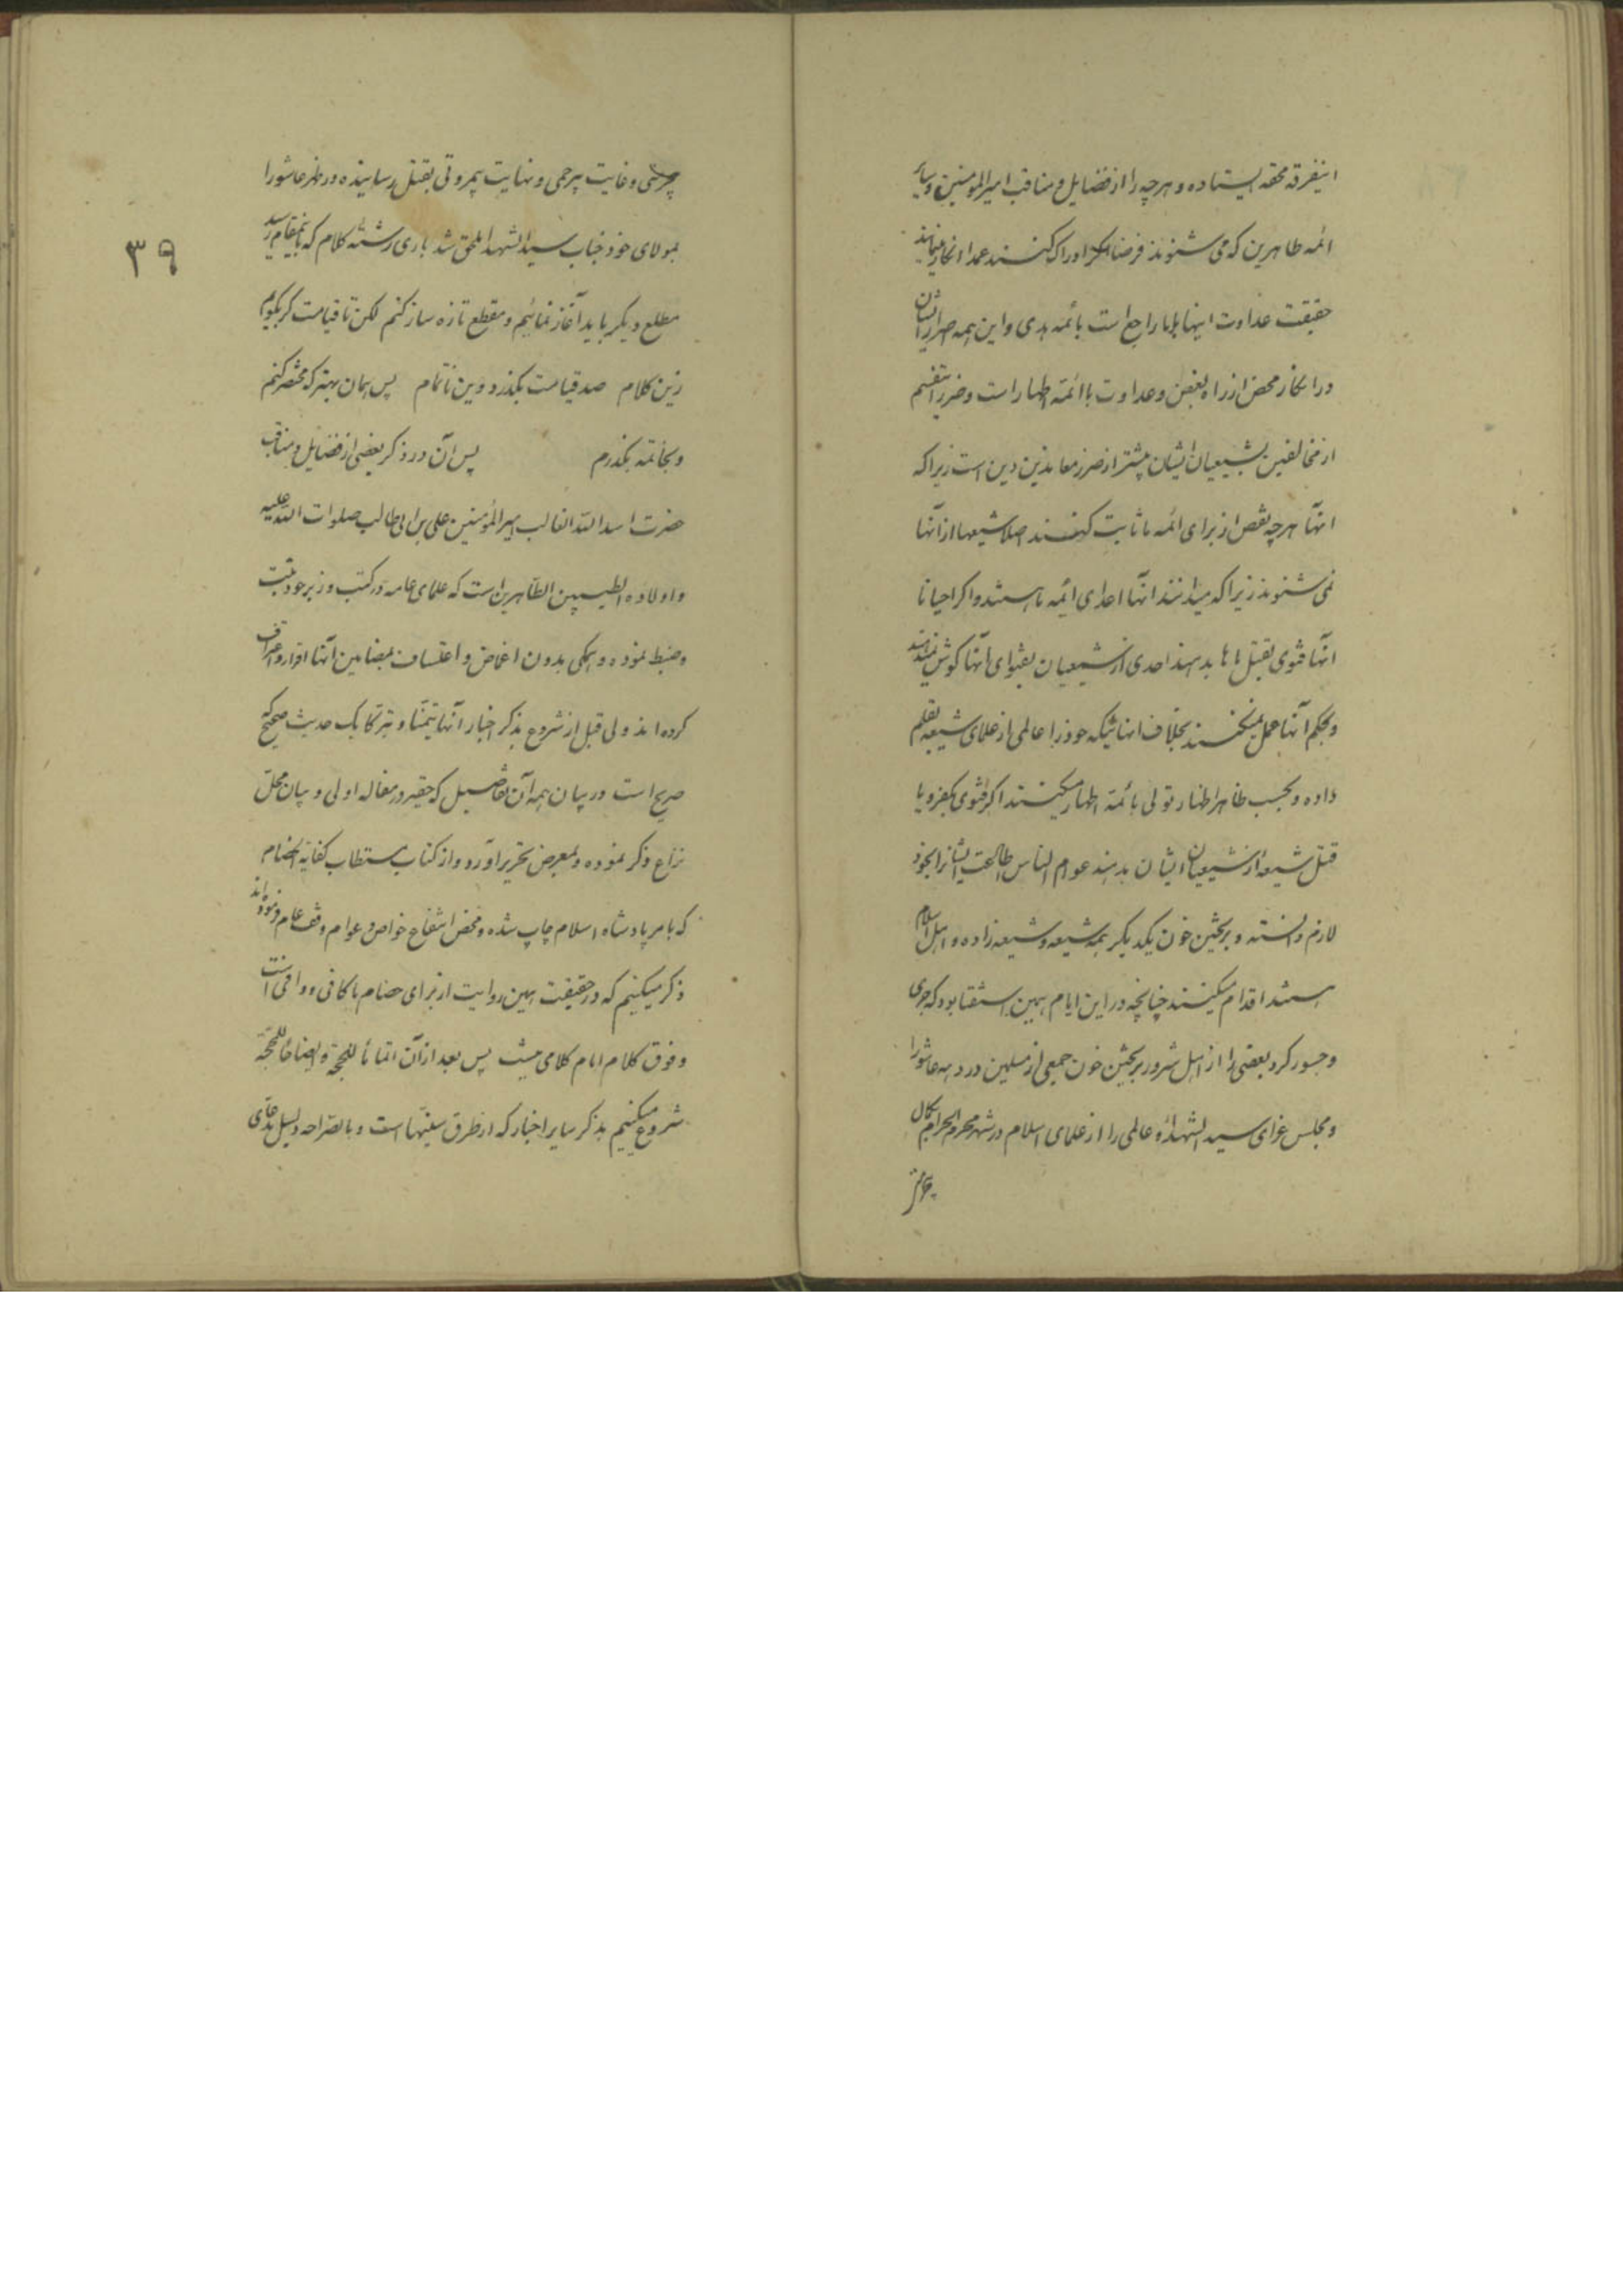 اینفرقه محقه ایستاده و هرچه را از فضایل و مناقب امیرالمومنین و سایر
ائمه طاهرین که می شنوند فرضا اگر ادراک کنند عمدا انکار مینمایند
حقیقت عداوت اینها با ما راجع است بائمه هدی و این همه اصرار ایشان
در انکار محض از راه بغض و عداوت با ائمه اطهار است و ضرر اینقسم
از مخالفین بشیعیان ایشان بیشتر از ضرر معاندین دین است زیراکه
انها هرچه نقص از برای ائمه ما ثابت کنند اصلا شیعها از آنها
نمی شنوند زیراکه میدانند آنها اعدای ائمه ما هستند و اگر احیانا
انها فتوی بقتل ماها بدهند احدی از شیعیان بفتوای آنها گوش نمیدهند
و بحکم آنها عمل نمیکنند بخلاف انهائیکه خود را عالمی از علمای شیعه بقلم
داده و بحسب ظاهر اظهار تولی بائمه اطهار میکنند اگر فتوی بکفر و یا
قتل شیعهٔ از شیعیان ایشان بدهند عوام الناس اطاعت ایشانرا بخود
لازم دانسته و بریختن خون یکدیگر همه شیعه و شیعه زاده و اهل اسلام
هستند اقدام میکنند چنانچه در این ایام همین استفتا بود که جری
و جسور کرد بعضی را از اهل شرور بریختن خون جمعی از مسلمین در دهه عاشورا
و مجلس عزای سید الشهداء و عالمی را از علمای اسلام در شهر محرم الحرام بکمال
۳۹
و غایت بیرحمی و نهایت بیمروتی بقتل رسانیده در ظهر عاشورا
بمولای خود جناب سید الشهدا ملحق شد باری رشته کلام که باینمقام رسید
مطلع دیگر باید آغاز نمائیم و مقطع تازه ساز کنم لکن تا قیامت گر بگویم
زین کلام صد قیامت بگذرد وین ناتمام پس همان بهتر که مختصر کنم
و بخاتمه بگذرم پس آن در ذکر بعضی از فضایل و مناقب
حضرت اسد الله الغالب امیر المؤمنین علی بن ابی طالب صلوات الله علیه
و اولاده الطیبین الطاهرین است که علمای عامه در کتب و زبر خود ثبت
و ضبط نموده و همگی بدون اغماض و اعتساف بمضامین آنها اقرار و اعتراف
کرده اند ولی قبل از شروع بذکر اخبار آنها تیمّنا و تبرّکا یک حدیث صحیح
صریح است در بیان همه آن تفاصیل که حقیر در مقاله اولی و بیان محلّ
نزاع ذکر نموده و بمعرض تحریر آورد و از کتاب مستطاب کفایة الخصام
که بامر پادشاه اسلام چاپ شده و محض انتفاع خواص و عوام وقف عام فرموده اند
ذکر میکنیم که در حقیقت همین روایت از برای خصام ما کافی و وافی است
و فوق کلام امام کلامی نیست پس بعد از آن اتماما للحجة و ایضاحا للمحجّة
شروع میکنیم بذکر سایر اخبار که از طرق سنیّها است و بالصراحه دلیل مدعای